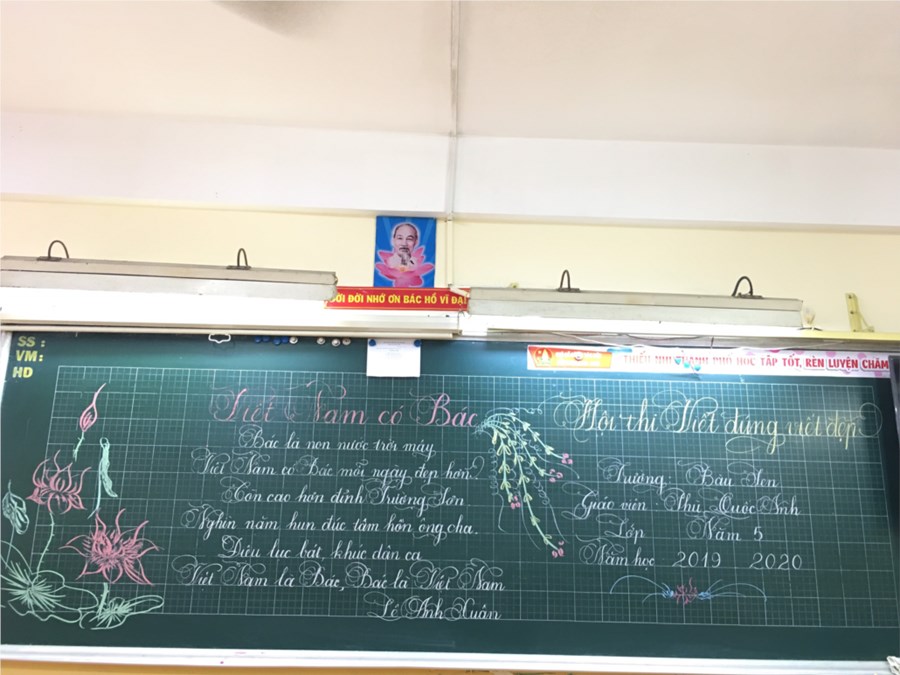 ĐỜI ĐỜI NHỚ ƠN BÁC HỒ VĨ ĐẠI
SS :
VM :
HD
THIẾU NHI THÀNH PHỐ HỌC TẬP TỐT, RÈN LUYỆN CHĂM
Việt Nam có Bác
Bác là non nước trời mây
Việt Nam có Bác mỗi ngày đẹp hơn
Còn cao hơn đỉnh Trường Sơn
Nghìn năm hun đúc tâm hồn ông cha.
Điệu lục bát, khúc dân ca
Việt Nam là Bác, Bác là Việt Nam
Lê Anh Xuân
Hội thi Viết đúng viết đẹp
Trường Bàu Sen
Giáo viên Phú Quốc Anh
Lớp Năm 5
Năm học 2019 2020